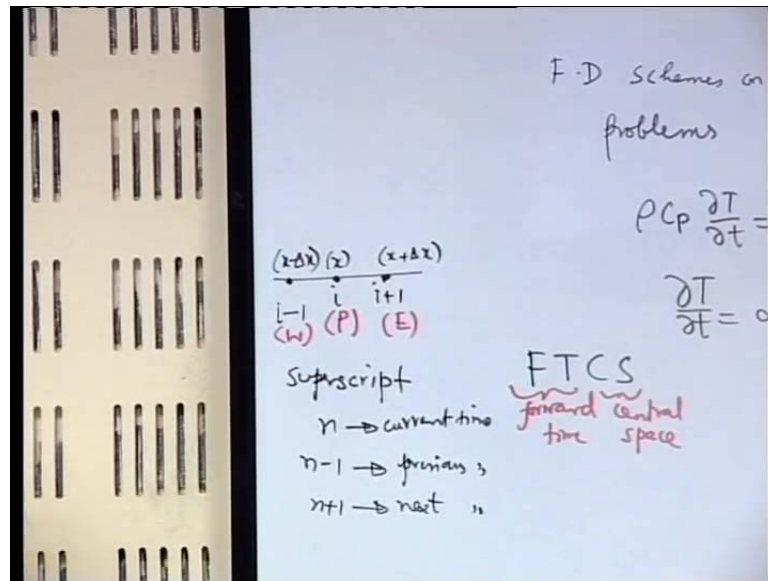 F.D schemes on
problems
ρCp ∂T/∂t =
∂T/∂t =
(x-Δx) (x) (x+Δx)
i-1 i i+1
(W) (P) (E)
superscript
n → current time
n-1 → previous "
n+1 → next "
FTCS
forward central
time space